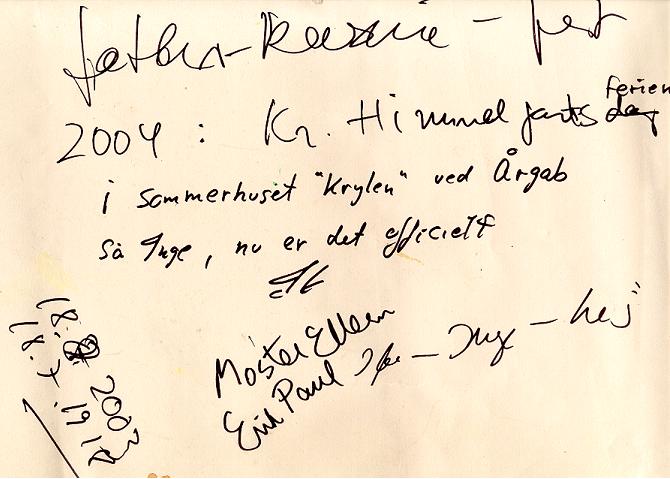 fætter-kusine-fest
2004: Kr. Himmelfartsferien
i sommerhuset "Krylen" ved Årgab
Så Inge, nu er det officielt
Moster Ellen
Erik Paul
hej
18. 2003